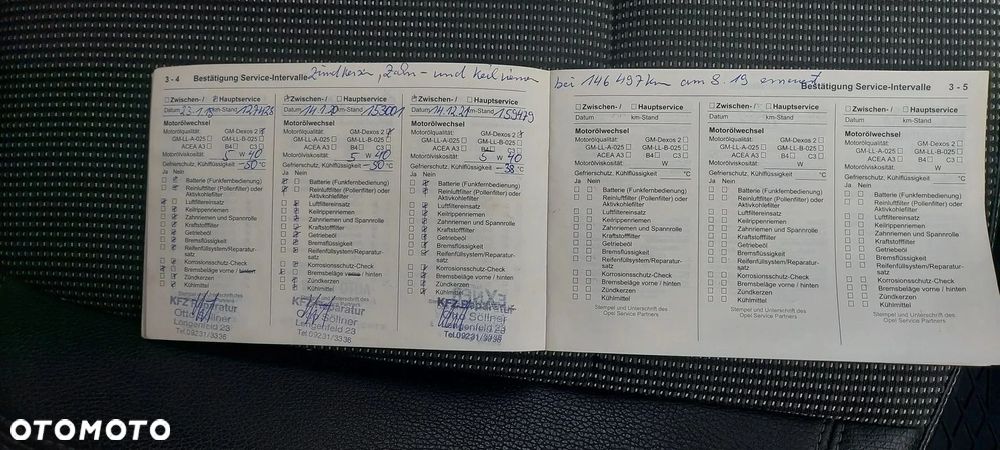 3 - 4 Bestätigung Service-Intervalle Zündkerzen, Zahn- und Keilriemen
bei 146 497 km am 8.19 erneuert
Bestätigung Service-Intervalle 3 - 5
Zwischen- / Hauptservice
Datum 23.1.18 km-Stand
Motorölwechsel
Motorölqualität: GM-Dexos 2
GM-LL-A-025 GM-LL-B-025
ACEA A3 B4 C3
Motorviskosität: 5 W 40
Gefrierschutz, Kühlflüssigkeit -30 °C
Ja Nein
Batterie (Funkfernbedienung)
Reinluftfilter (Pollenfilter) oder
Aktivkohlefilter
Luftfiltereinsatz
Keilrippenriemen
Zahnriemen und Spannrolle
Kraftstofffilter
Getriebeöl
Bremsflüssigkeit
Reifenfüllsystem/Reparatur-
satz
Korrosionsschutz-Check
Bremsbeläge vorne / hinten
Zündkerzen
Kühlmittel
KFZ Reparatur
Otto Söllner
Längenfeld 23
Tel.09231/3336
Zwischen- / Hauptservice
Datum 14.1.20 km-Stand 153001
Motorölwechsel
Motorölqualität: GM-Dexos 2
GM-LL-A-025 GM-LL-B-025
ACEA A3 B4 C3
Motorviskosität: 5 W 40
Gefrierschutz, Kühlflüssigkeit -30 °C
Ja Nein
Batterie (Funkfernbedienung)
Reinluftfilter (Pollenfilter) oder
Aktivkohlefilter
Luftfiltereinsatz
Keilrippenriemen
Zahnriemen und Spannrolle
Kraftstofffilter
Getriebeöl
Bremsflüssigkeit
Reifenfüllsystem/Reparatur-
satz
Korrosionsschutz-Check
Bremsbeläge vorne / hinten
Zündkerzen
Kühlmittel
KFZ Reparatur
Söllner
Längenfeld 23
Tel.09231/3336
Zwischen- / Hauptservice
Datum 14.12.21 km-Stand 159479
Motorölwechsel
Motorölqualität: GM-Dexos 2
GM-LL-A-025 GM-LL-B-025
ACEA A3 B4 C3
Motorölviskosität: 5 W 40
Gefrierschutz, Kühlflüssigkeit -38 °C
Ja Nein
Batterie (Funkfernbedienung)
Reinluftfilter (Pollenfilter) oder
Aktivkohlefilter
Luftfiltereinsatz
Keilrippenriemen
Zahnriemen und Spannrolle
Kraftstofffilter
Getriebeöl
Bremsflüssigkeit
Reifenfüllsystem/Reparatur-
satz
Korrosionsschutz-Check
Bremsbeläge vorne / hinten
Zündkerzen
Kühlmittel
KFZ Reparatur
Söllner
Längenfeld 23
Tel.09231/3336
Zwischen- / Hauptservice
Datum km-Stand
Motorölwechsel
Motorölqualität: GM-Dexos 2
GM-LL-A-025 GM-LL-B-025
ACEA A3 B4 C3
Motorviskosität: W
Gefrierschutz, Kühlflüssigkeit °C
Ja Nein
Batterie (Funkfernbedienung)
Reinluftfilter (Pollenfilter) oder
Aktivkohlefilter
Luftfiltereinsatz
Keilrippenriemen
Zahnriemen und Spannrolle
Kraftstofffilter
Getriebeöl
Bremsflüssigkeit
Reifenfüllsystem/Reparatur-
satz
Korrosionsschutz-Check
Bremsbeläge vorne / hinten
Zündkerzen
Kühlmittel
Stempel und Unterschrift des
Opel Service Partners
Zwischen- / Hauptservice
Datum km-Stand
Motorölwechsel
Motorölqualität: GM-Dexos 2
GM-LL-A-025 GM-LL-B-025
ACEA A3 B4 C3
Motorviskosität: W
Gefrierschutz, Kühlflüssigkeit °C
Ja Nein
Batterie (Funkfernbedienung)
Reinluftfilter (Pollenfilter) oder
Aktivkohlefilter
Luftfiltereinsatz
Keilrippenriemen
Zahnriemen und Spannrolle
Kraftstofffilter
Getriebeöl
Bremsflüssigkeit
Reifenfüllsystem/Reparatur-
satz
Korrosionsschutz-Check
Bremsbeläge vorne / hinten
Zündkerzen
Kühlmittel
Stempel und Unterschrift des
Opel Service Partners
Zwischen- / Hauptservice
Datum km-Stand
Motorölwechsel
Motorölqualität: GM-Dexos 2
GM-LL-A-025 GM-LL-B-025
ACEA A3 B4 C3
Motorviskosität: W
Gefrierschutz, Kühlflüssigkeit °C
Ja Nein
Batterie (Funkfernbedienung)
Reinluftfilter (Pollenfilter) oder
Aktivkohlefilter
Luftfiltereinsatz
Keilrippenriemen
Zahnriemen und Spannrolle
Kraftstofffilter
Getriebeöl
Bremsflüssigkeit
Reifenfüllsystem/Reparatur-
satz
Korrosionsschutz-Check
Bremsbeläge vorne / hinten
Zündkerzen
Kühlmittel
Stempel und Unterschrift des
Opel Service Partners
OTOMOTO